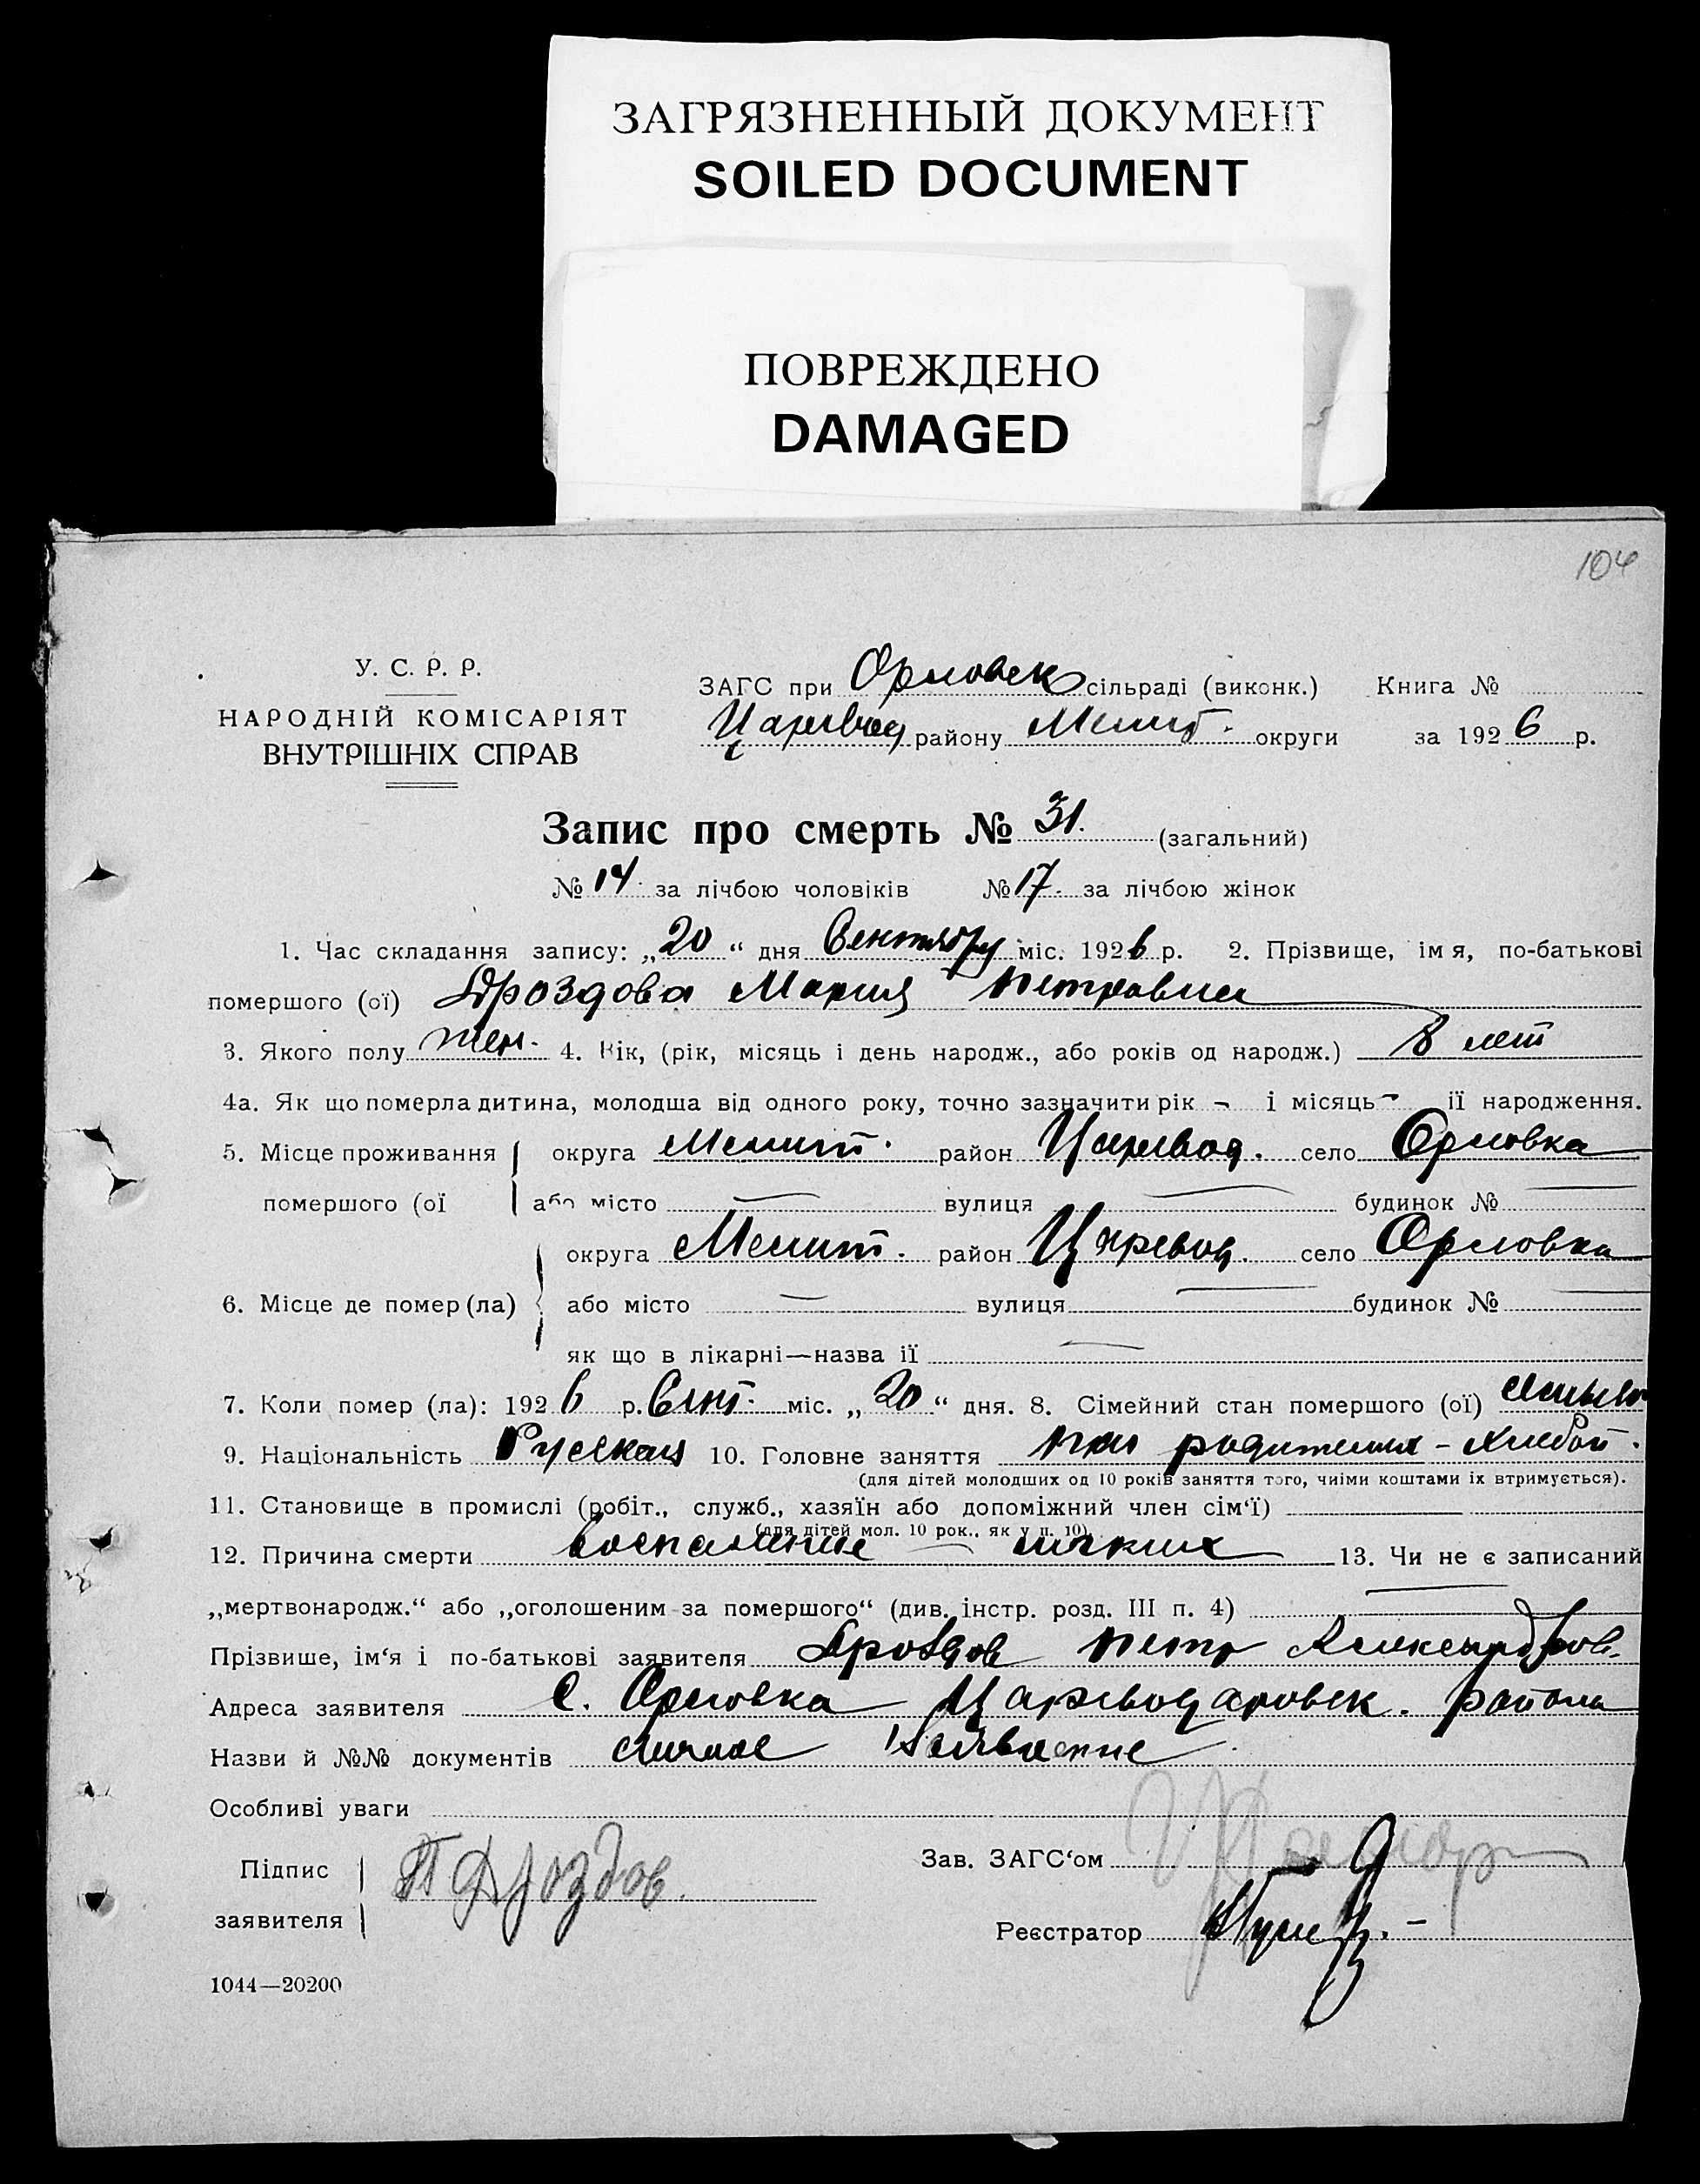 ЗАГРЯЗНЕННЫЙ ДОКУМЕНТ
SOILED DOCUMENT
ПОВРЕЖДЕНО
DAMAGED
104
У. С. Р. Р.
НАРОДНІЙ КОМІСАРІЯТ
ВНУТРІШНІХ СПРАВ
ЗАГС при Орловск сільраді (виконк.) Книга №
Царевод району Мелит. округи за 1926 р.
Запис про смерть № 31. (загальний)
№ 14. за лічбою чоловіків № 17. за лічбою жінок
1. Час складання запису: „20“ дня Сентября міс. 1926 р. 2. Прізвище, імя, по-батькові
помершого (ої) Дроздова Мария Петровна
3. Якого полу жен. 4. Вік, (рік, місяць і день народж., або років од народж.) 8 лет
4а. Як що померла дитина, молодша від одного року, точно зазначити рік – і місяць – ії народження.
5. Місце проживання округа Мелит. район Царевод. село Орловка
помершого (ої або місто — вулиця — будинок № —
округа Мелит. район Царевод. село Орловка
6. Місце де помер (ла) або місто — вулиця — будинок № —
як що в лікарні—назва ії —
7. Коли помер (ла): 1926 р. Сент. міс. „20“ дня. 8. Сімейний стан помершого (ої)
9. Національність Русская 10. Головне заняття при родителях – хлебоп.
(для дітей молодших од 10 років заняття того, чиіми коштами іх втримується).
11. Становище в промислі (робіт., служб., хазяїн або допоміжний член сім‘ї) —
(для дітей мол. 10 рок., як у п. 10)
12. Причина смерти воспаление легких 13. Чи не є записаний
„мертвонародж.“ або „оголошеним за помершого“ (див. інстр. розд. III п. 4) —
Прізвише, ім‘я і по-батькові заявителя Дроздов Петр Александров.
Адреса заявителя с. Орловка Цареводаровск. района
Назви й №№ документів личное заявление
Особливі уваги
Підпис
заявителя
П Дроздов.
Зав. ЗАГС‘ом
Реєстратор
1044—20200